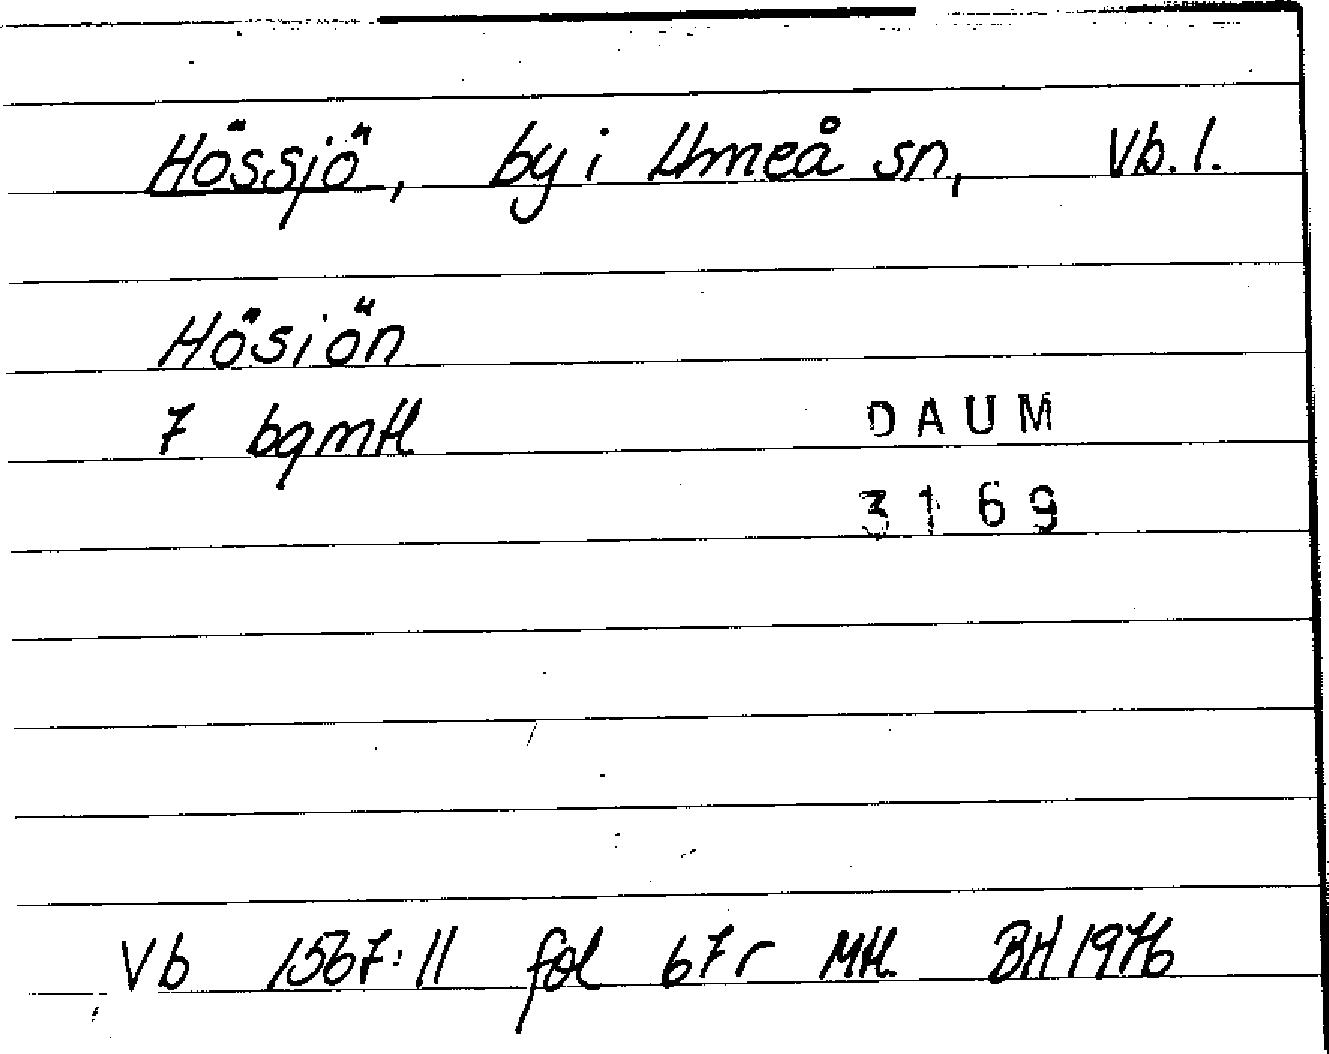 Hössjö, by i Umeå sn, Vb. l.
Hösiön
7 bqmtl
DAUM
3169
Vb 1567:11 fol 67r Mtl. BH 1976